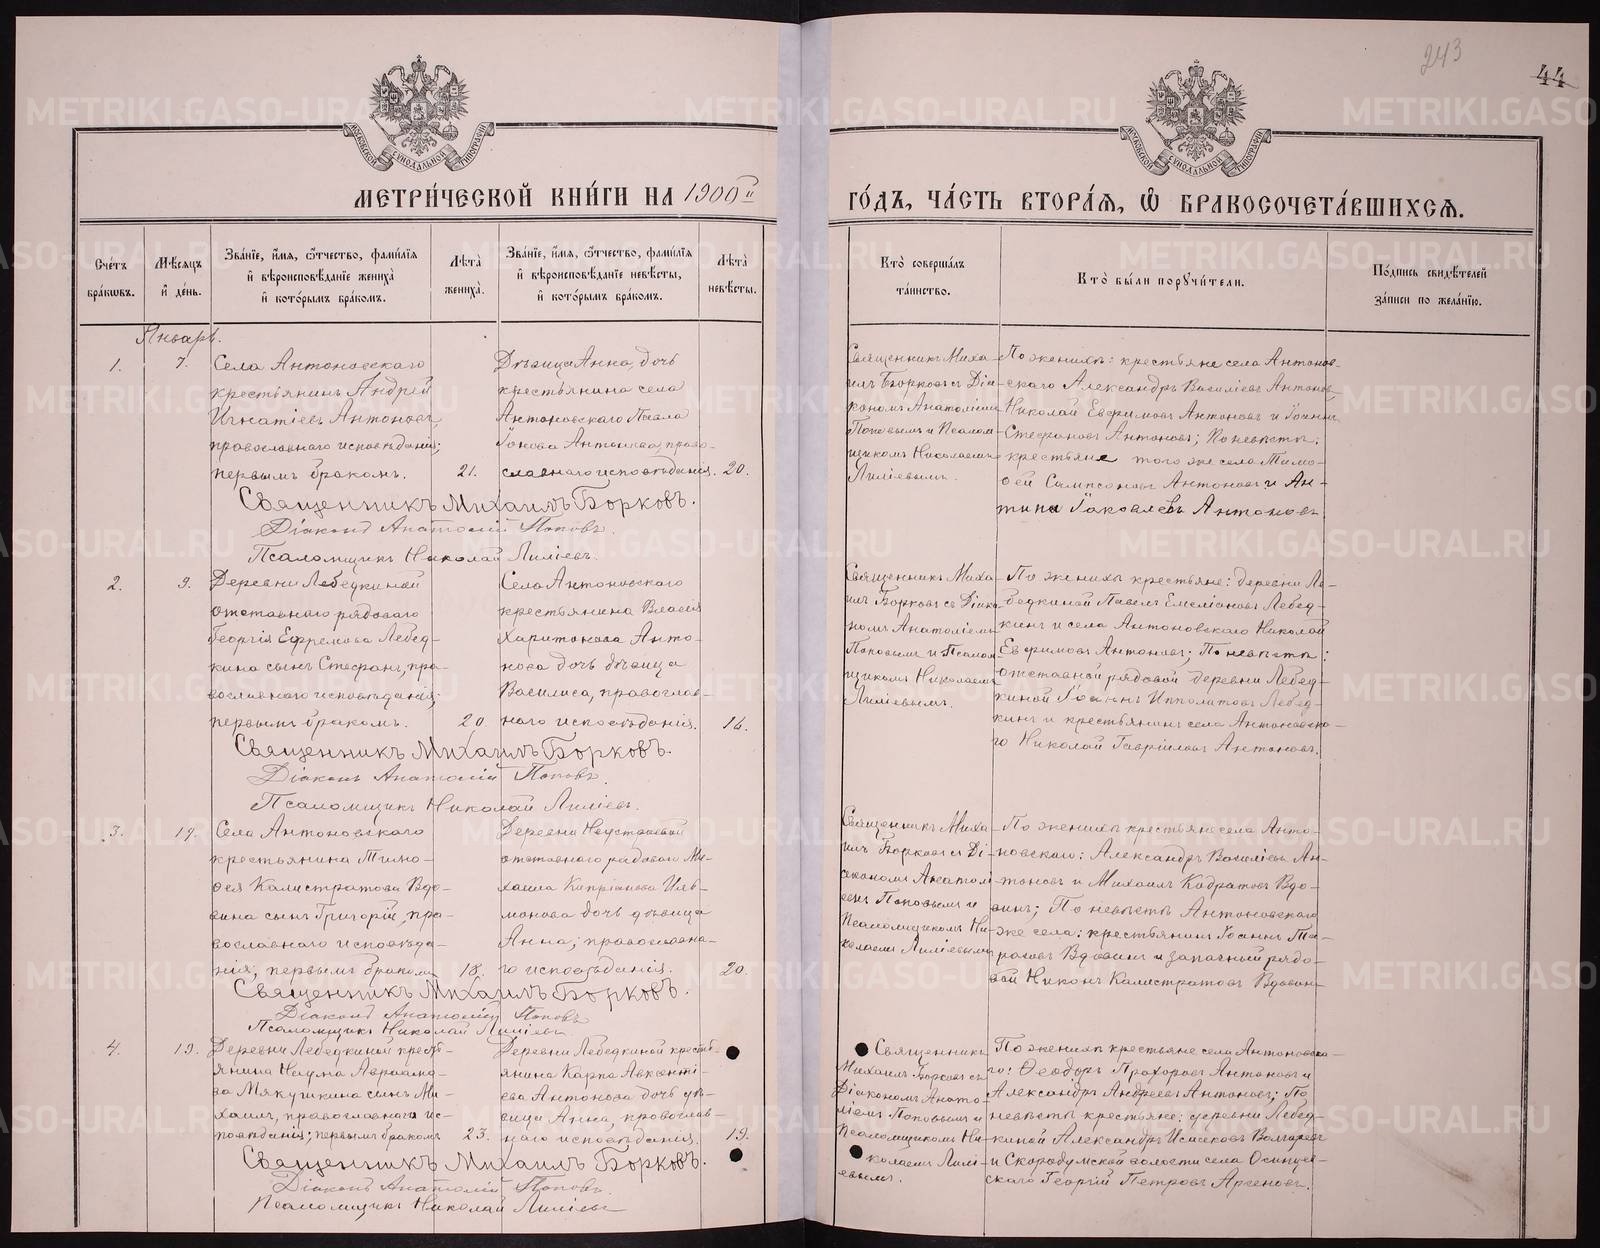 243
44
МЕТРИ́ЧЕСКОЙ КНИ́ГИ НА 1900й
ГО́ДЪ, ЧА́СТЬ ВТОРА́Я, Ѽ БРАКОСОЧЕТА́ВШИХСЯ.
МОСКОВСКОЙ СѴНОДАЛЬНОЙ ТИПОГРАФІИ
МОСКОВСКОЙ СѴНОДАЛЬНОЙ ТИПОГРАФІИ
Сче́тъ бра́кѡвъ.
Мѣ́сяцъ и҆ де́нь.
Зва́нїе, и҆́мя, ѻ҆́тчество, фами́лїя и҆ вѣроисповѣ́данїе жениха̀ и҆ кото́рымъ бра́комъ.
Лѣ́та жениха̀.
Зва́нїе, и҆́мя, ѻ҆́тчество, фами́лїя и҆ вѣроисповѣ́данїе невѣ́сты, и҆ кото́рымъ бра́комъ.
Лѣ́та невѣ́сты.
Кто̀ соверша́лъ та́инство.
Кто̀ бы́ли порꙋчи́тели.
По́дпись свидѣ́телей за́писи по жела́нїю.
Январь.
1.
7.
Села Антоновскаго
крестьянинъ Андрей
Игнатіевъ Антоновъ,
православнаго исповѣданія;
первымъ бракомъ.
21.
Дѣвица Анна, дочь
крестьянина села
Антоновскаго Павла
Іонова Антонова, право-
славнаго исповѣданія.
20.
Священникъ Миха-
илъ Борковъ съ Діа-
кономъ Анатоліемъ
Поповымъ и Псалом-
щикомъ Николаемъ
Лиліевымъ.
По женихѣ: крестьяне села Антонов-
скаго Александръ Василіевъ Антоновъ,
Николай Евфимовъ Антоновъ и Іоаннъ
Стефановъ Антоновъ; По невѣстѣ:
крестьяне того же села Тимо-
ѳей Сампсоновъ Антоновъ и Ан-
типа Іаковлевъ Антоновъ.
Священникъ Михаилъ Борковъ.
Діаконъ Анатолій Поповъ.
Псаломщикъ Николай Лиліевъ.
2.
9.
Деревни Лебедкиной
отставнаго рядоваго
Георгія Ефремова Лебед-
кина сынъ Стефанъ, пра-
вославнаго исповѣданія;
первымъ бракомъ.
20.
Села Антоновскаго
крестьянина Власія
Харитонова Анто-
нова дочь дѣвица
Василиса, православ-
наго исповѣданія.
16.
Священникъ Миха-
илъ Борковъ съ Діако-
номъ Анатоліемъ
Поповымъ и Псалом-
щикомъ Николаемъ
Лиліевымъ.
По женихѣ крестьяне: деревни Ле-
бедкиной Павелъ Емеліановъ Лебед-
кинъ и села Антоновскаго Николай
Евфимовъ Антоновъ; По невѣстѣ:
отставной рядовой деревни Лебед-
киной Іоаннъ Ипполитовъ Лебед-
кинъ и крестьянинъ села Антоновска-
го Николай Гавріиловъ Антоновъ.
Священникъ Михаилъ Борковъ.
Діаконъ Анатолій Поповъ.
Псаломщикъ Николай Лиліевъ.
3.
19.
Села Антоновскаго
крестьянина Тимо-
ѳея Калистратова Вдо-
вина сынъ Григорій, пра-
вославнаго исповѣда-
нія; первымъ бракомъ
18.
Деревни Неустроевой
отставнаго рядоваго Ми-
хаила Кипріанова
дочь дѣвица
Анна, православна-
го исповѣданія.
20.
Священникъ Миха-
илъ Борковъ съ Ді-
акономъ Анатолі-
емъ Поповымъ и
Псаломщикомъ Ни-
колаемъ Лиліевымъ
По женихѣ крестьяне села Анто-
новскаго: Александръ Василіевъ Ан-
тоновъ и Михаилъ Кодратовъ Вдо-
винъ; По невѣстѣ Антоновскаго
же села: крестьянинъ Іоаннъ Та-
расовъ Вдовинъ и запасный рядо-
вой Никонъ Калистратовъ Вдовинъ
Священникъ Михаилъ Борковъ.
Діаконъ Анатолій Поповъ
Псаломщикъ Николай Лиліевъ
4.
19.
Деревни Лебедкиной кресть-
янина Наума Авраамо-
ва Мякушкина сынъ Ми-
хаилъ, православнаго ис-
повѣданія; первымъ бракомъ
23.
Деревни Лебедкиной кресть-
янина Карпа Авксенті-
ева Антонова дочь дѣ-
вица Анна, православ-
наго исповѣданія.
19.
Священникъ
Михаилъ Борковъ съ
Діакономъ Анато-
ліемъ Поповымъ и
Псаломщикомъ Ни-
колаемъ Лилі-
евымъ.
По женихѣ крестьяне села Антоновска-
го: Ѳеодоръ Прохоровъ Антоновъ и
Александръ Андреевъ Антоновъ; По
невѣстѣ крестьяне: деревни Лебед-
киной Александръ
и Скородумской волости села Осинцев-
скаго Георгій Петровъ
Священникъ Михаилъ Борковъ.
Діаконъ Анатолій Поповъ.
Псаломщикъ Николай Лиліевъ
METRIKI.GASO-URAL.RU